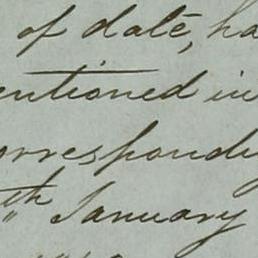 of date, ha
entioned in
orrespondi
th January